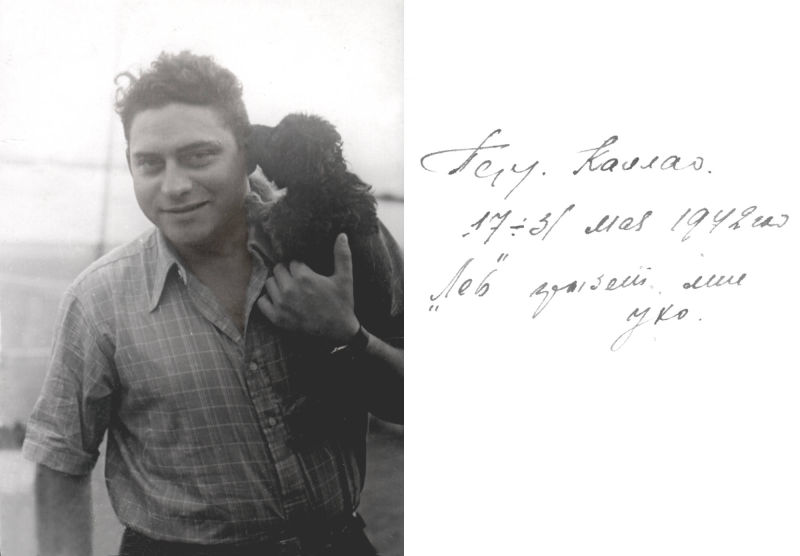 Перу. Каллао.
17÷31 мая 1942го
"Лев" грызет мне
ухо.